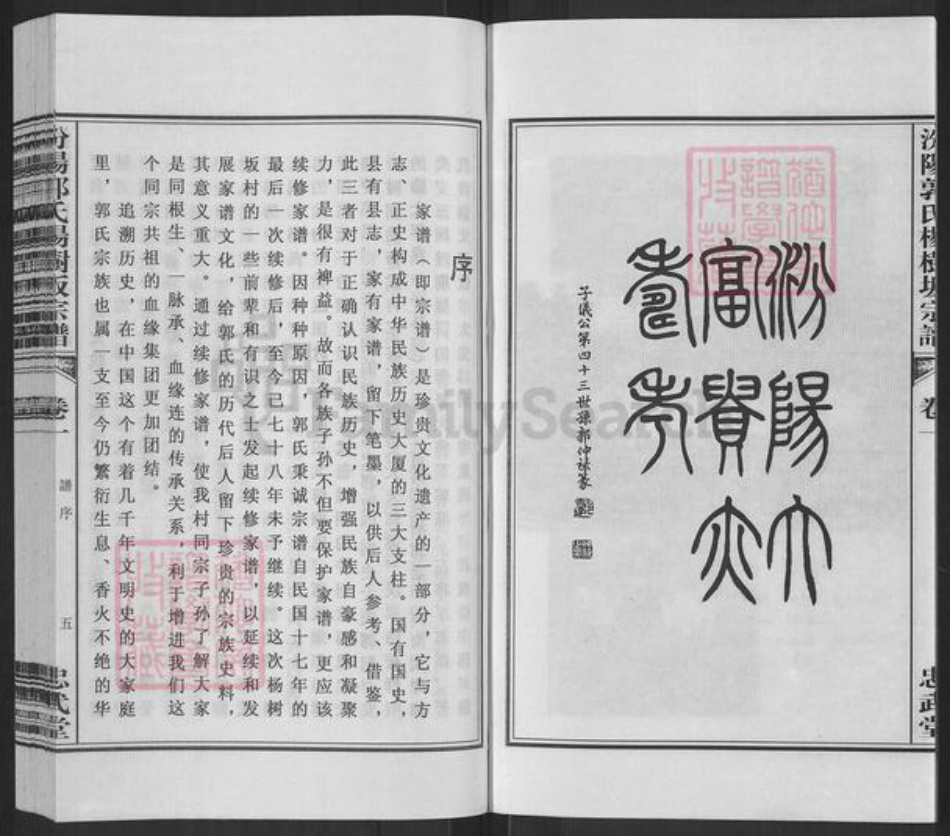 汾陽郭氏楊樹坂宗譜
卷一
忠武堂
汾陽大
富貴亦
壽考
子儀公第四十三世孫郭仲禄篆
FamilySearch
序
家谱（即宗谱）是珍贵文化遗产的一部分，它与方
志、正史构成中华民族历史大厦的三大支柱。国有国史，
县有县志，家有家谱，留下笔墨，以供后人参考、借鉴，
此三者对于正确认识民族历史，增强民族自豪感和凝聚
力，是很有裨益。故而各族子孙不但要保护家谱，更应该
续修家谱。因种种原因，郭氏秉诚宗谱自民国十七年的
最后一次续修后，至今已七十八年未予继续。这次杨树
坂村的一些前辈和有识之士发起续修家谱，以延续和发
展家谱文化，给郭氏的历代后人留下珍贵的宗族史料，
其意义重大。通过续修家谱，使我村同宗子孙了解大家
是同根生、一脉承、血缘连的传承关系，利于增进我们这
个同宗共祖的血缘集团更加团结。
追溯历史，在中国这个有着几千年文明史的大家庭
里，郭氏宗族也属一支至今仍繁衍生息、香火不绝的华
汾陽郭氏楊樹坂宗譜
卷一
譜序
五
忠武堂